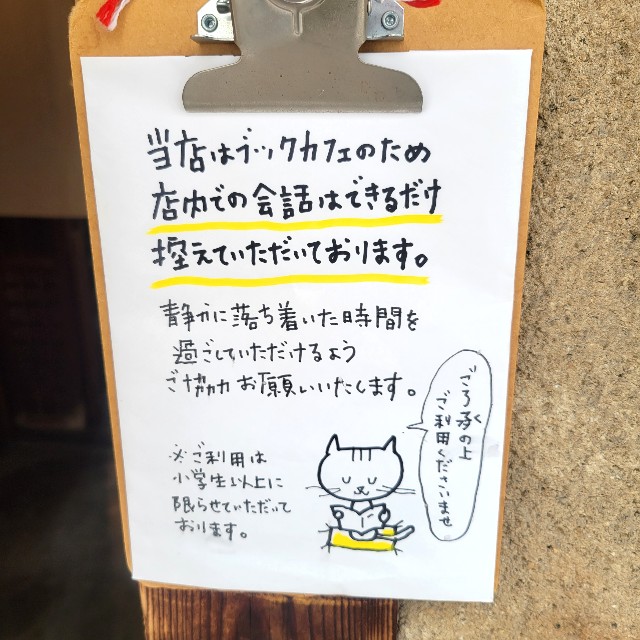 当店はブックカフェのため
店内での会話はできるだけ
控えていただいております。
静かに落ち着いた時間を
過ごしていただけるよう
ご協力お願いいたします。
※ご利用は
小学生以上に
限らせていただいて
おります。
ごろ承の上
く
ご利用くださいませ